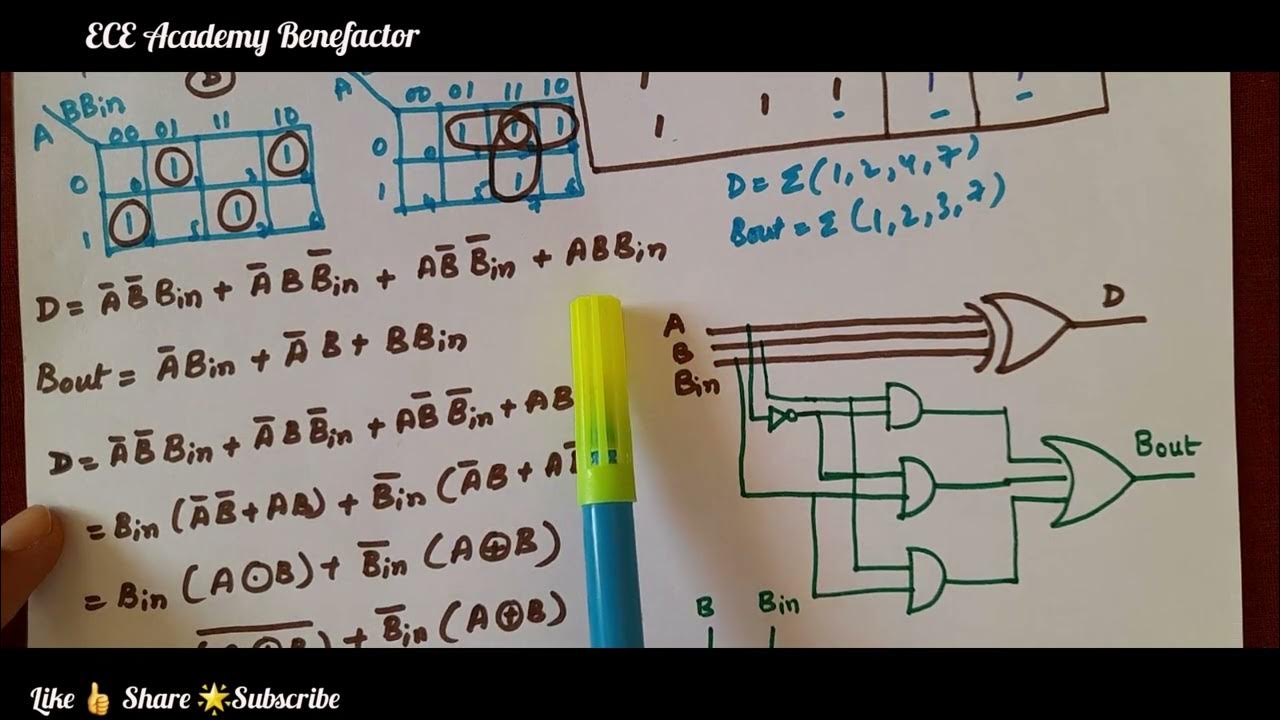 ECE Academy Benefactor
A BBin 00 01 11 10
0 0 1 3 1
1 1 5 1 6
A 00 01 11 10
0 0 1 1 1
1 4 5 1 6
7
1 1 1 1
1
D = Σ(1,2,4,7)
Bout = Σ(1,2,3,7)
D = A̅ B̅ Bin + A̅ B B̅in + A B̅ B̅in + A B Bin
Bout = A̅ Bin + A̅ B + B Bin
D = A̅ B̅ Bin + A̅ B B̅in + A B̅ B̅in + A B
= Bin (A̅ B̅ + AB) + B̅in (A̅ B + A B̅
= Bin (A ⊙ B) + B̅in (A ⊕ B)
+ B̅in (A ⊕ B)
A
B
Bin
D
Bout
B Bin
Like 👍 Share 🌟 Subscribe